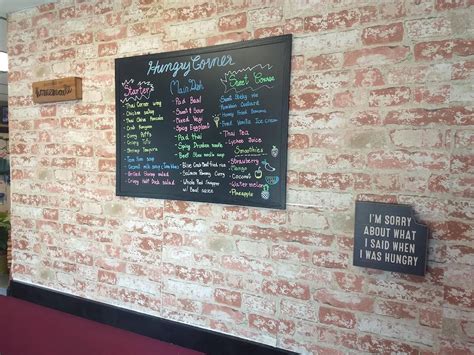 Hungry Corner
Starter
Thai Corner wing
Chicken satay
Thai Calm
Curry Puffs
Crispy Tofu
Shrimp Tempura
Tom Yum soup
Coconut milk soup
Grilled Shrimp salad
Crispy Half Duck salad
Main Dish
Pad Basil
Sweet & Sour
Mixed Vegi
Spicy Eggplant
Pad thai
Spicy Drunken noodle
Beef Stew noodle soup
Blue Crab Meat Fried rice
Salmon Panang Curry
Whole Red Snapper
w/ Basil sauce
Sweet Corner
Sweet Sticky rice
Custard
Honey Fried Banana
Fried Vanilla Ice cream
Thai Tea
Lychee Juice
Smoothies
Strawberry
Mango
Coconut
Water melon
Pineapple
I'M SORRY
ABOUT WHAT
I SAID WHEN
I WAS HUNGRY